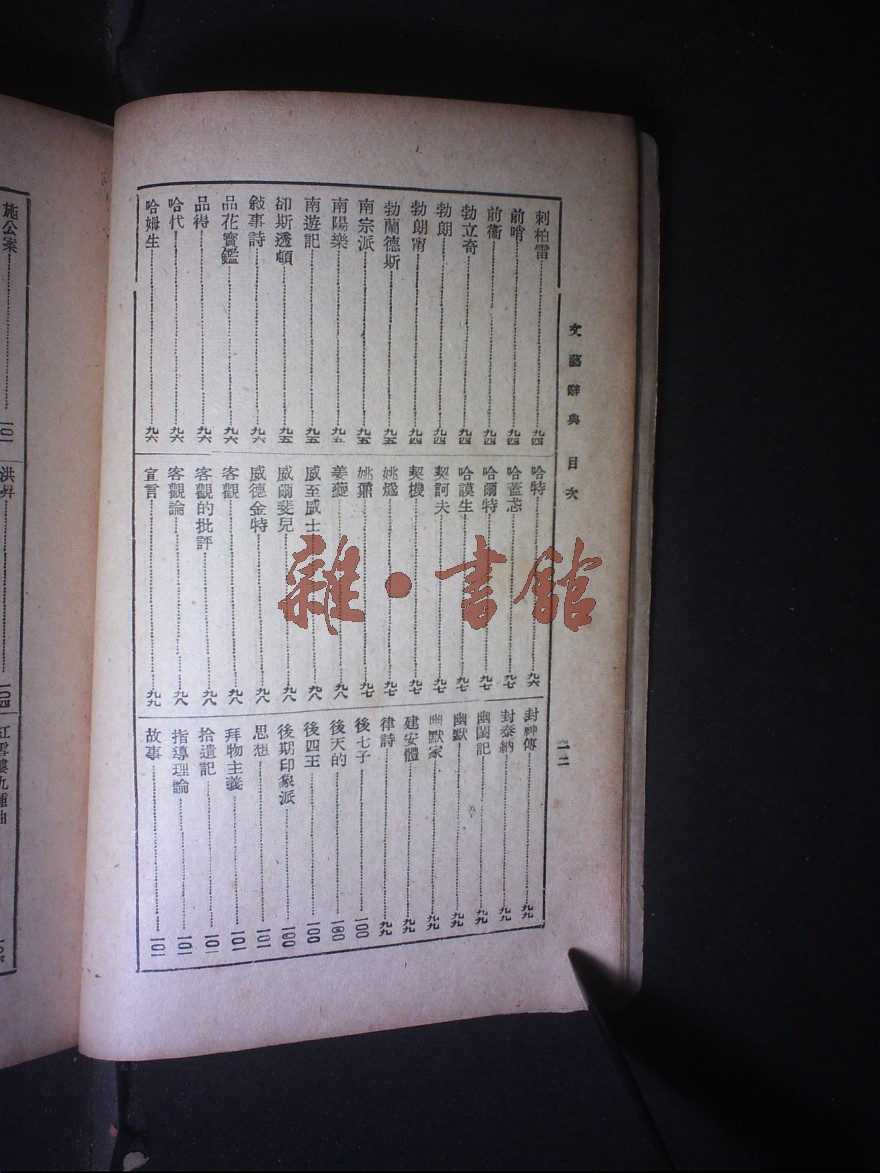 文藝辭典 目次
一二
刺柏雷 九四
前哨 九四
前衞 九四
勃立奇 九四
勃朗 九四
勃朗甯 九四
勃蘭德斯 九五
南宗派 九五
南陽樂 九五
南遊記 九五
卻斯透頓 九五
敍事詩 九六
品花寳鑑 九六
品得 九六
哈代 九六
哈姆生 九六
哈特 九六
哈蓋忒 九七
哈爾特 九七
哈謨生 九七
契訶夫 九七
契機 九七
姚燧 九七
姚鼐 九七
姜夔 九八
威至威士 九八
威爾斐兒 九八
威德金特 九八
客觀 九八
客觀的批評 九八
客觀論 九八
宣言 九九
封神傳 九九
封泰納 九九
幽閨記 九九
幽默 九九
幽默家 九九
建安體 九九
律詩 九九
後七子 一〇〇
後天的 一〇〇
後四王 一〇〇
後期印象派 一〇〇
思想 一〇一
拜物主義 一〇一
拾遺記 一〇一
指導理論 一〇一
故事 一〇一
施公案 一〇一
洪昇 一〇四
紅雪樓九種曲
雜·書館